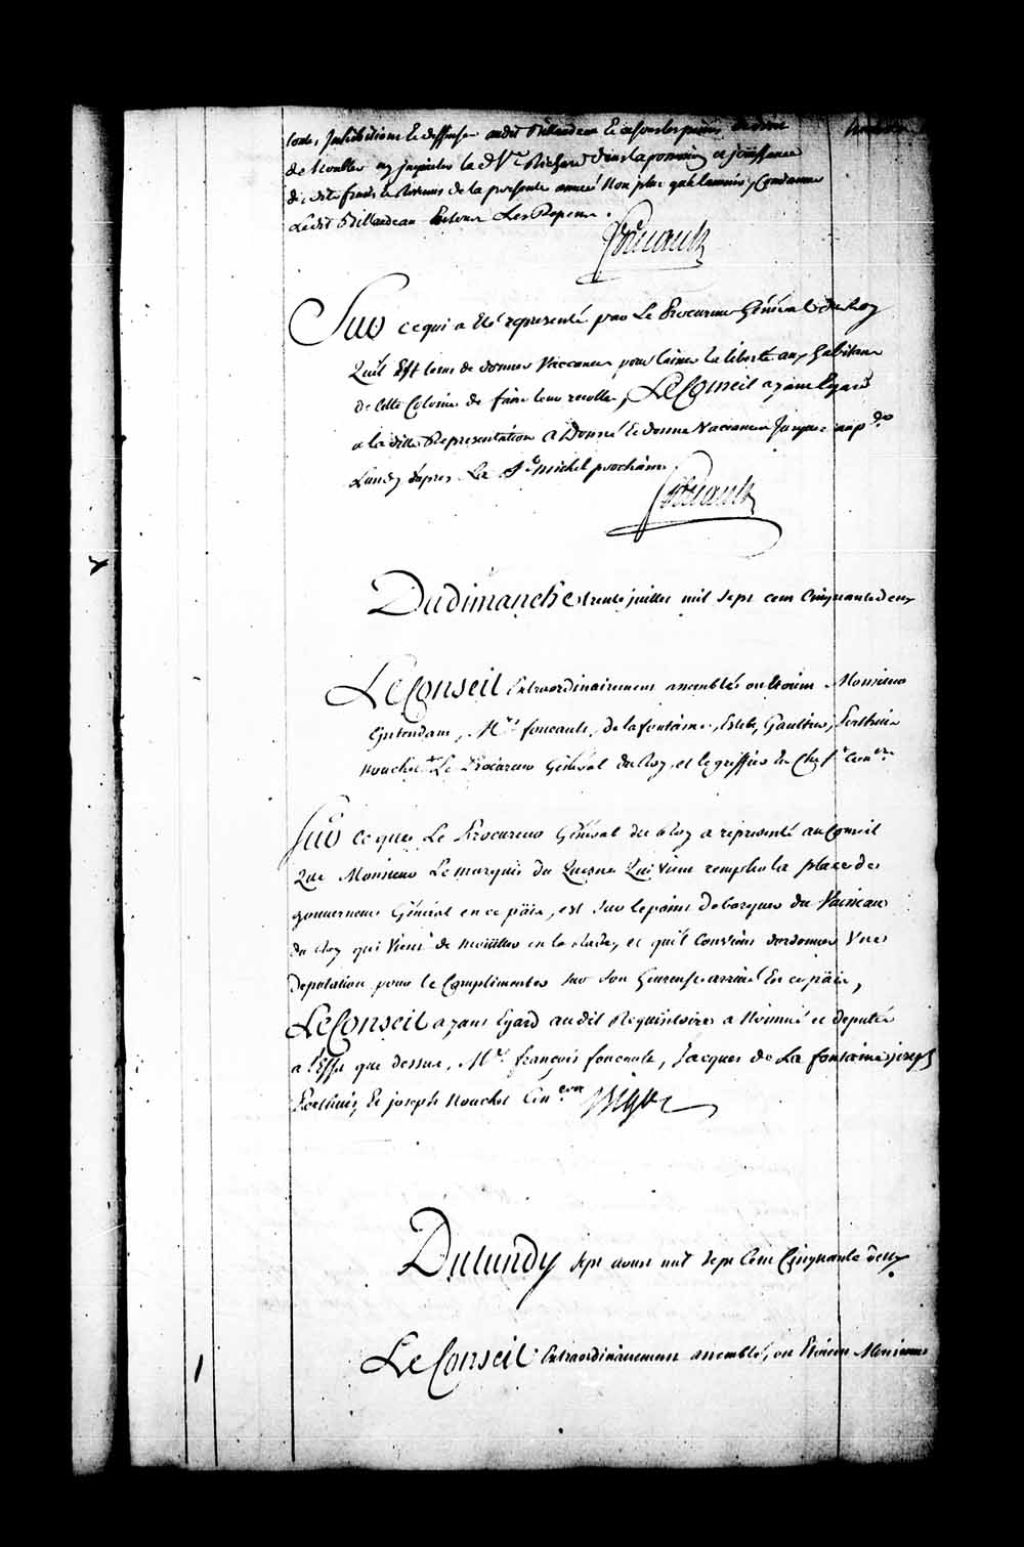 de troubler ny inquieter la d. Ve. Richard dans la possession et joüissance
de la presente année non plus que
Ledit Billaudeau Les Depens.
Foucault
Sur ce qui a Eté representé par Le Procureur Général du Roy
Quil Est tems de donner Vaccances pour laisser la liberté aux habitans
de Cette Colonie de faire leur recolte, Le Conseil ayant Egard
a la ditte Representation a Donné Et donne Vaccances Jusques au p.er
Lundy d'apres La St. michel prochaine.
Foucault
Du dimanche trente juillet mil sept cent Cinquante deux
Le Conseil Extraordinairement assemblé ou Etoient Monsieur
L'Intendant, Mrs. foucault, de lafontaine, Estebe, Gaultier, Perthuis
nouchet & Le Procureur Général du Roy, et le greffier en Chef
Sur ce que Le Procureur Général du Roy a représenté au Conseil
Que Monsieur Le marquis du Quesne Qui vient remplir la place de
gouverneur Général en ce païs, est sur le point debarquer du Vaisseau
du Roy qui vient de moüiller en la rade, et qu'il Convient d'ordonner Une
deputation pour le Complimenter sur son heureuse arrivée En ce païs,
Le Conseil ayant Egard audit Requisitoire a Nommé et deputé
a l'Effet que dessus, Mrs. françois foucault, Jacques de La fontaine, joseph
Perthuis, Et joseph Nouchet Con.ers Bigot
Du Lundy sept aoust mil sept Cent Cinquante deux
Le Conseil Extraordinairement assemblé, ou Etoient Monsieur